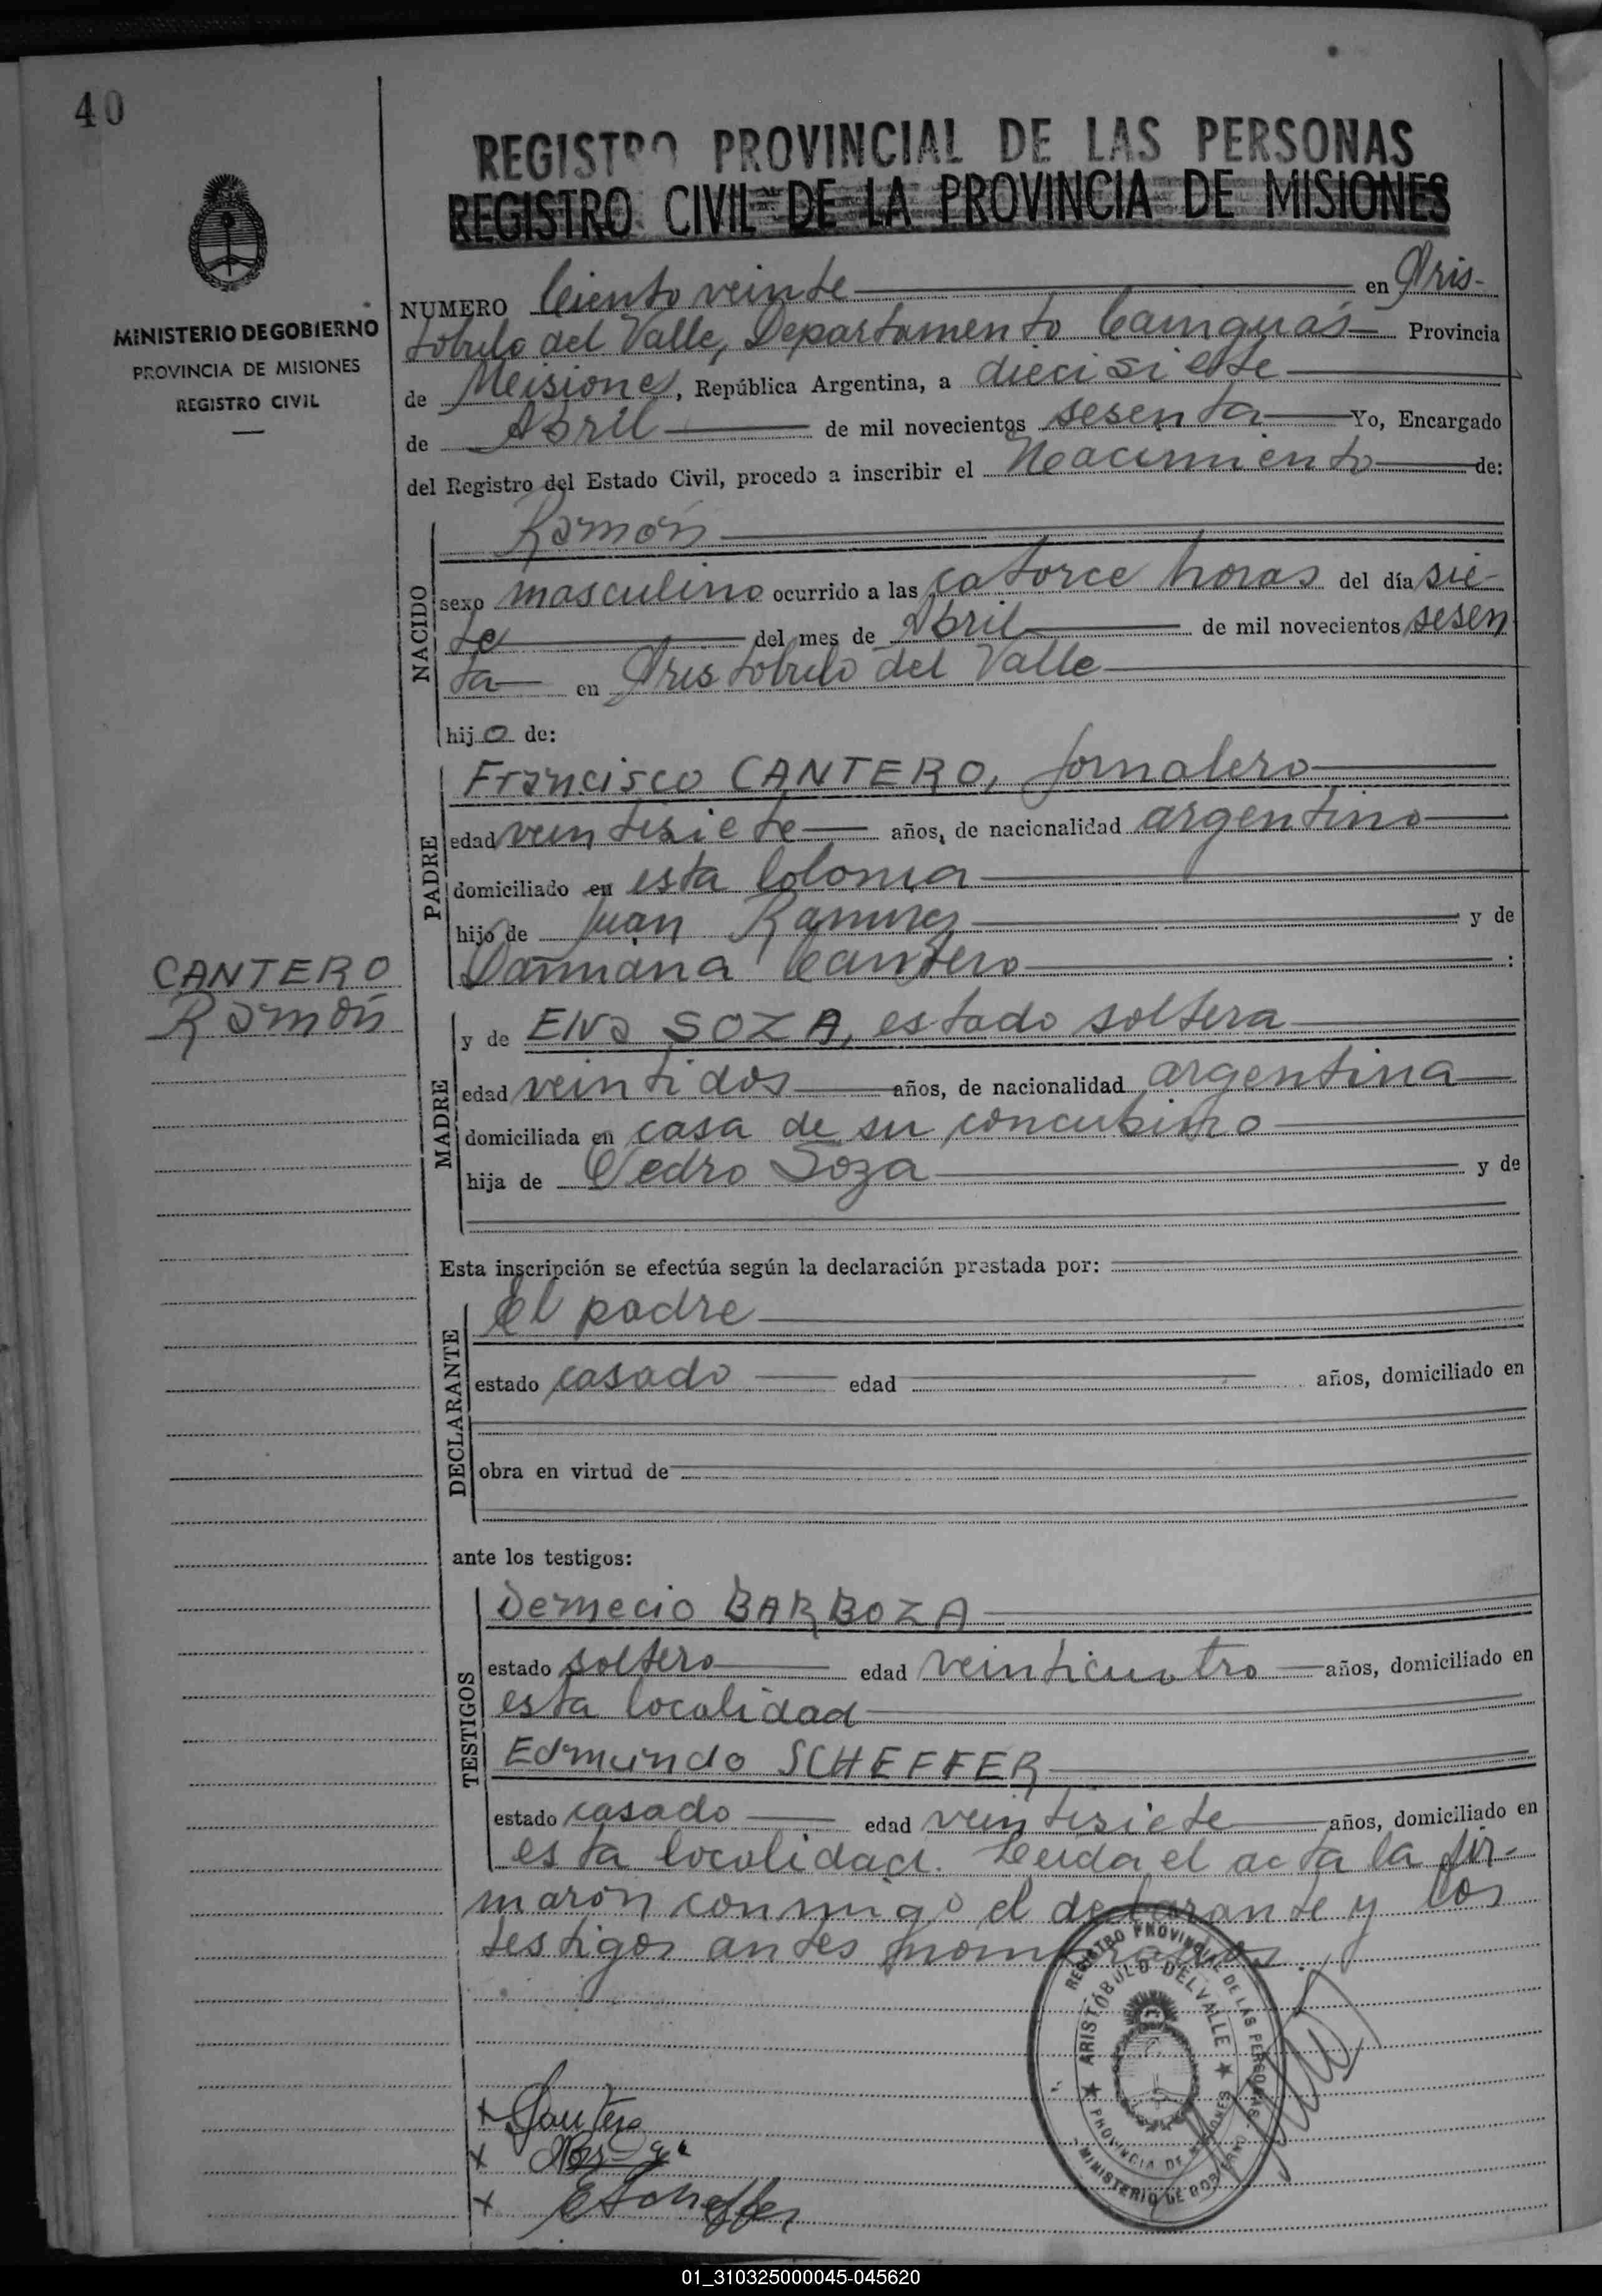 40
REGISTRO PROVINCIAL DE LAS PERSONAS
REGISTRO CIVIL DE LA PROVINCIA DE MISIONES
MINISTERIO DE GOBIERNO
PROVINCIA DE MISIONES
REGISTRO CIVIL
NUMERO Ciento veinte en Aris-
tobulo del Valle, Departamento Cainguás Provincia
de Misiones, República Argentina, a diecisiete
de Abril de mil novecientos sesenta Yo, Encargado
del Registro del Estado Civil, procedo a inscribir el Nacimiento de:
NACIDO
Ramón
sexo masculino ocurrido a las catorce horas del día sie-
te del mes de Abril de mil novecientos sesen
ta en Aristobulo del Valle
hijo de:
PADRE
Francisco CANTERO, jornalero
edad veintisiete años, de nacionalidad argentino
domiciliado en esta Colonia
hijo de Juan Ramirez y de
Damiana Cantero :
CANTERO
Ramón
MADRE
y de Elva SOZA, estado soltera
edad veintidos años, de nacionalidad argentina
domiciliada en casa de su concubino
hija de Pedro Soza y de
Esta inscripción se efectúa según la declaración prestada por:
DECLARANTE
El padre
estado casado edad años, domiciliado en
obra en virtud de
ante los testigos:
TESTIGOS
BARBOZA
estado soltero edad veinticuatro años, domiciliado en
esta localidad
Edmundo SCHEFFER
estado casado edad veintisiete años, domiciliado en
esta localidad. Leida el acta la fir-
maron conmigo el declarante y los
testigos antes nombrados.
REGISTRO PROVINCIAL DE LAS PERSONAS
ARISTÓBULO DEL VALLE
PROVINCIA DE MISIONES
MINISTERIO DE GOBIERNO
x Cantero
x
x EScheffer
01_310325000045-045620